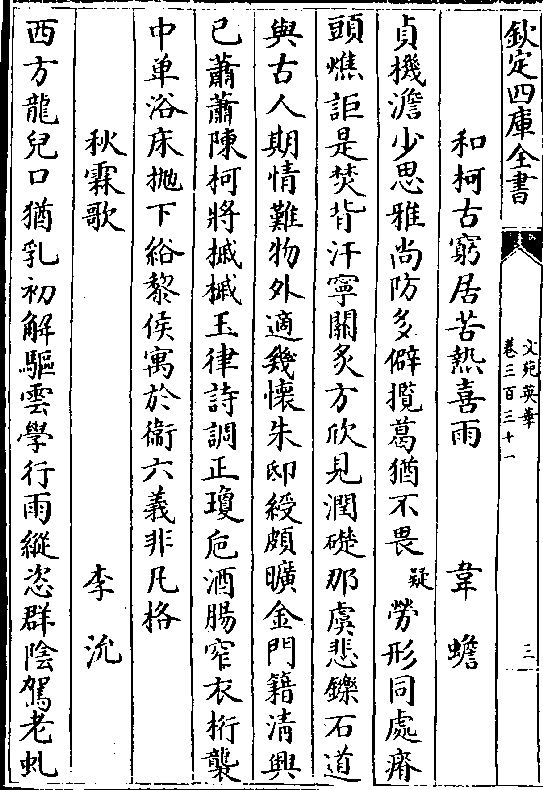 欽定四庫全書
文苑英華
卷三百三十一
三
和柯古窮居苦熱喜雨 韋蟾
貞機澹少思雅尚防多僻攬葛猶不畏疑勞形同處瘠
頭燋詎是焚背汗寧關炙方欣見潤礎那虞悲鑠石道
與古人期情難物外適幾懷朱邸綬頗曠金門籍清興
已蕭蕭陳柯將摵摵玉律詩調正瓊卮酒腸窄衣桁襲
中单浴床抛下綌黎侯寓於衞六義非凡格
秋霖歌 李沇
西方龍兒口猶乳初解驅雲學行雨縱恣群陰駕老虬